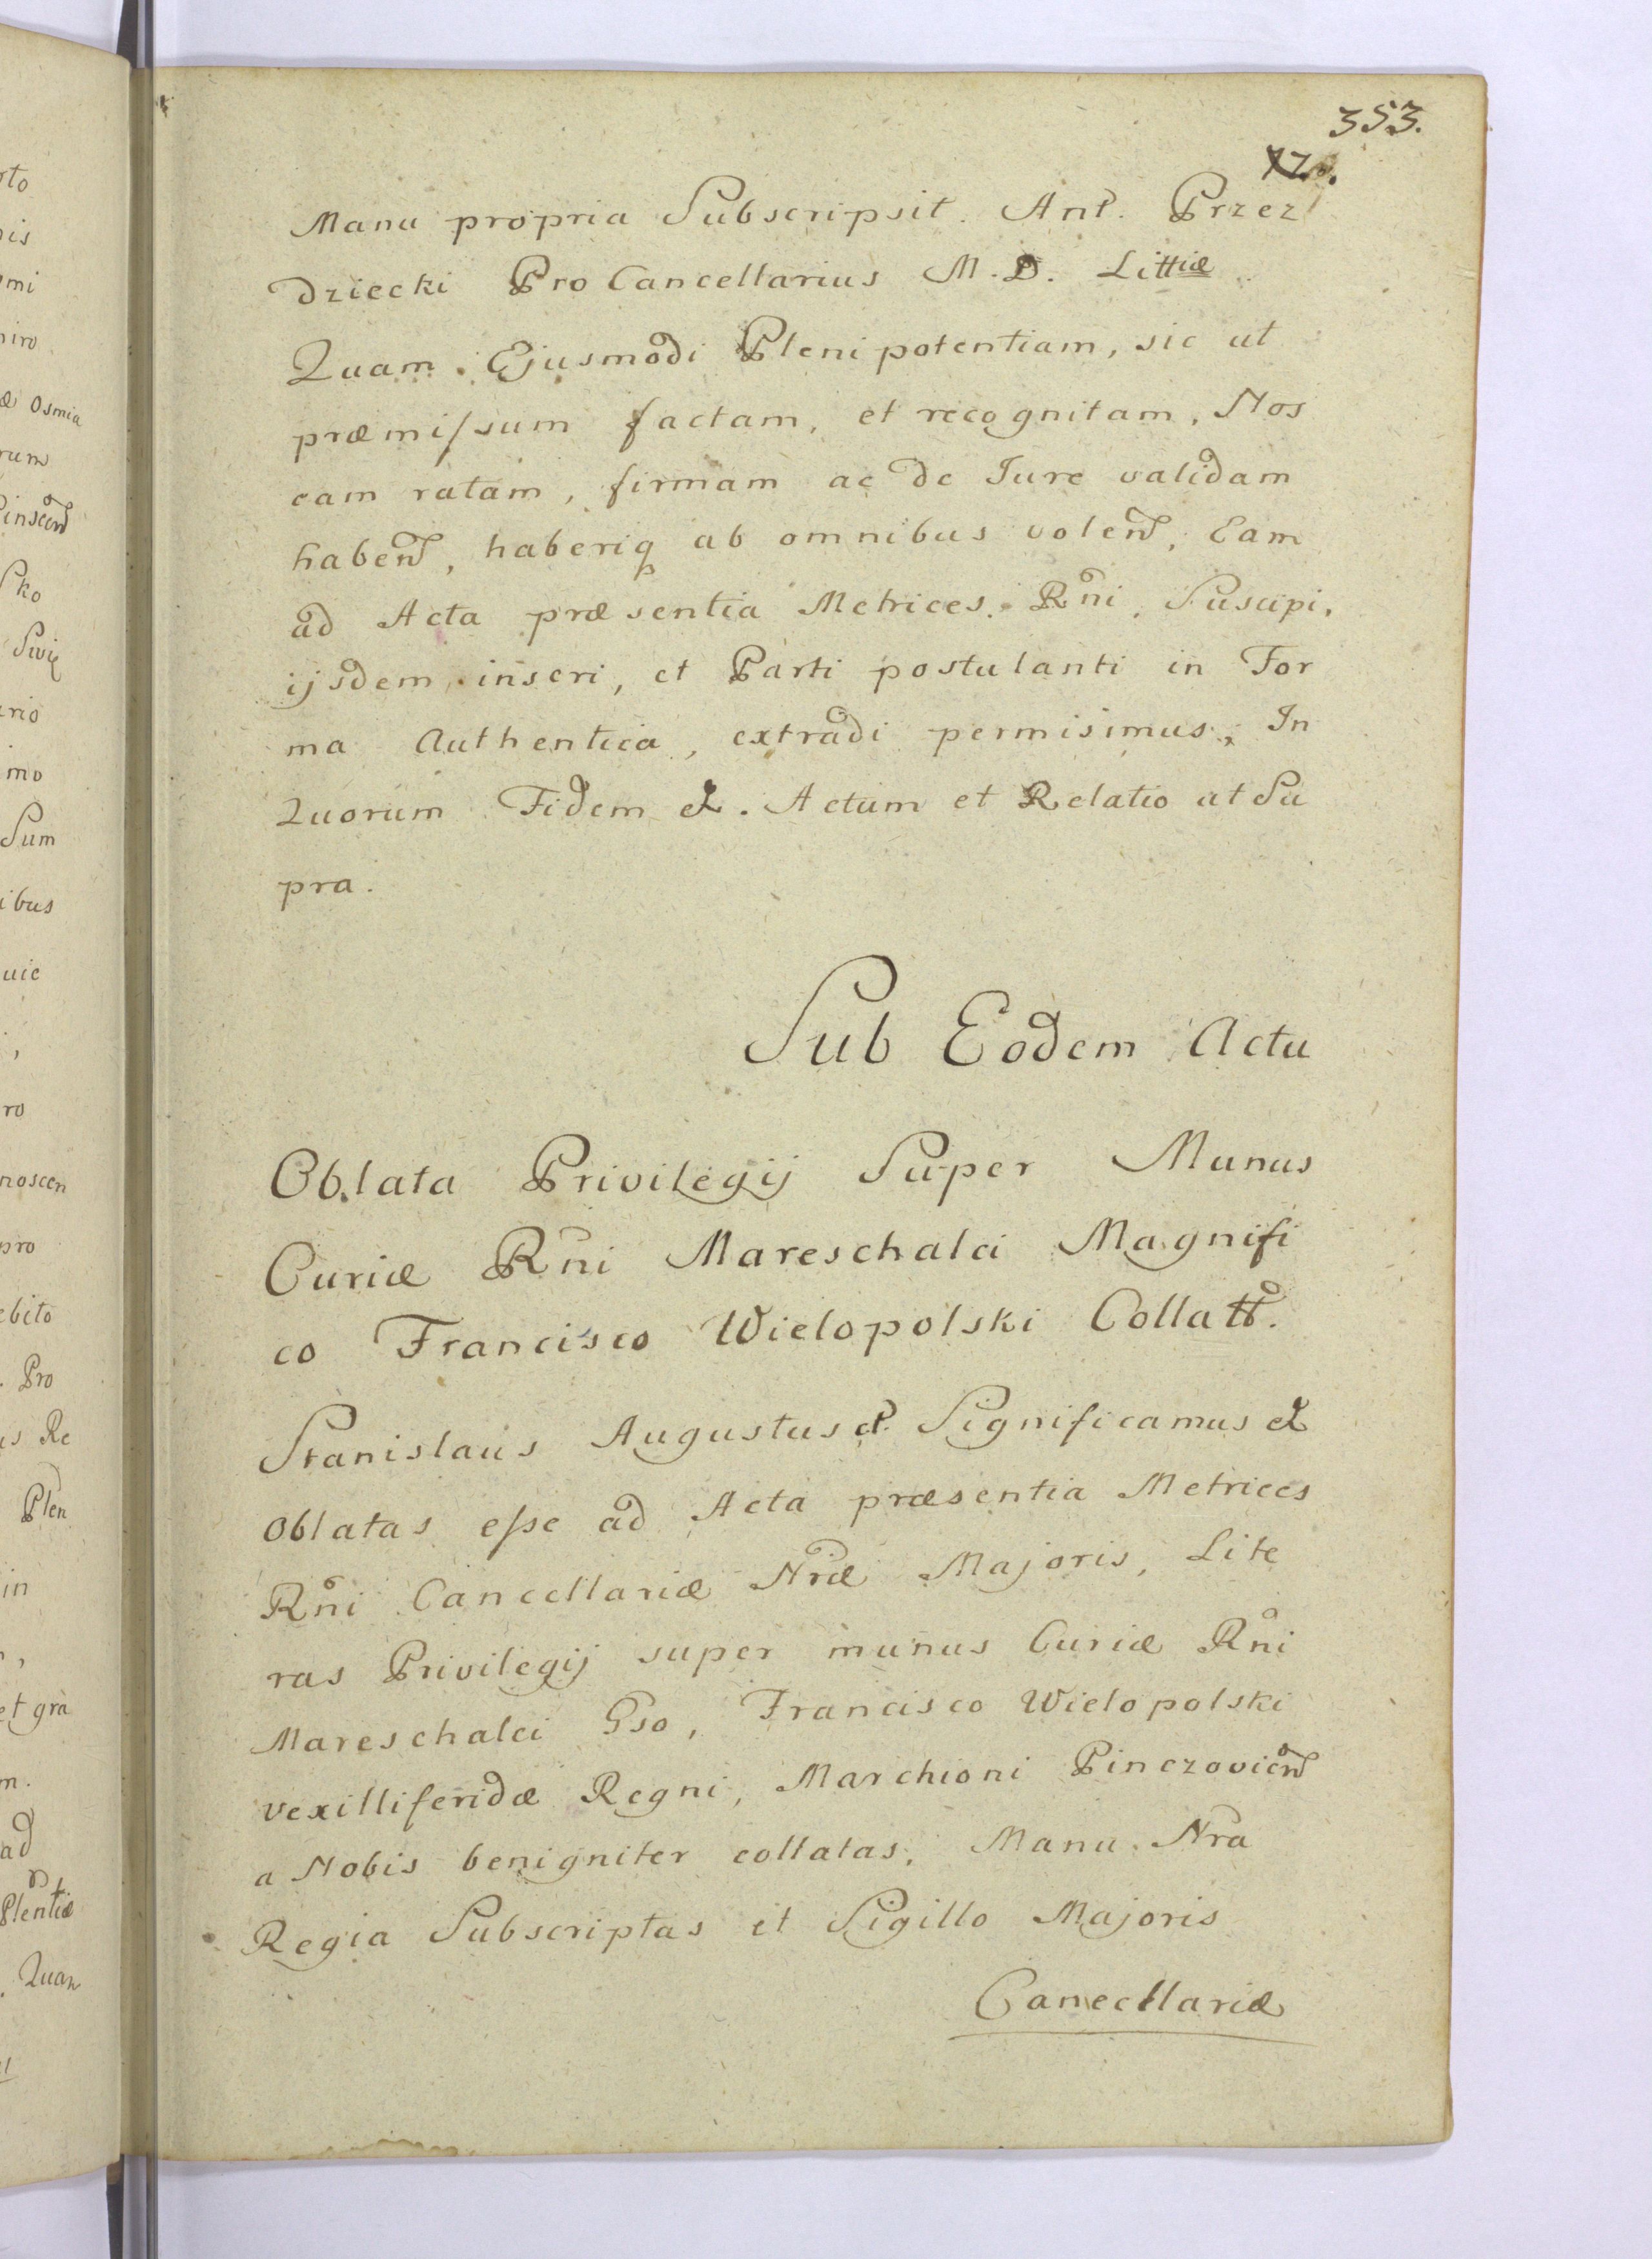 353.
Manu propria Subscripsit. Ant. Przez
dziecki Pro Cancellarius M. D. Littiæ
Quam Ejusmodi Plenipotentiam, sic ut
præmiſsum factam, et recognitam, Nos
eam ratam, firmam ac de Jure validam
haben̄d, haberiq ab omnibus volen̄d, Eam
ad Acta præsentia Metrices Rn̄i Suscipi,
ijsdem inseri, et Parti postulanti in For
ma Authentica, extradi permisimus, In
Quorum Fidem &. Actum et Relatio ut Su
pra.
Sub Eodem Actu
Oblata Privilegij Super Munus
Curiæ Rn̄i Mareschalci Magnifi
co Francisco Wielopolski Collatt.
Stanislaus Augustus &. Significamus &
Oblatas eſse ad Acta præsentia Metrices
Rn̄i Cancellariæ Nr̄æ Majoris, Lite
ras Privilegij super munus Curiæ Rn̄i
Mareschalci Gso, Francisco Wielopolski
vexilliferidæ Regni, Marchioni Pinczovien̄
a Nobis benigniter collatas, Manu Nr̄a
Regia Subscriptas et Sigillo Majoris
Cancellariæ
to
is
mi
niro
æ Osmia
rum
Sko
rio
mo
Sum
ibus
uic
ro
noscen
pro
ebito
. Pro
us Re
Plen
in
et gra
m.
ad
Plentiæ
. Quan